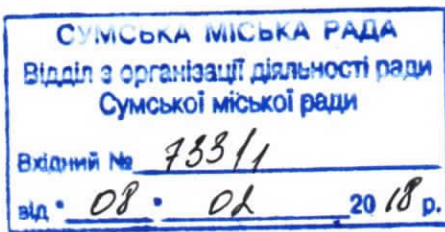 СУМСЬКА МІСЬКА РАДА
Відділ з організації діяльності ради
Сумської міської ради
Вхідний № 733/1
від " 08 " 02 2018 р.